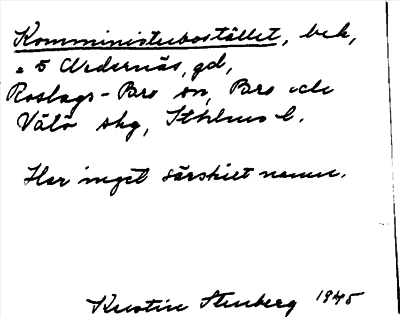 Komministerbostället, bek,
å 5 Ardernäs, gd,
Roslags-Bro sn, Bro och
Vätö skg, Sthlms l.
Har inget särskilt namn.
Kerstin Stenberg 1945